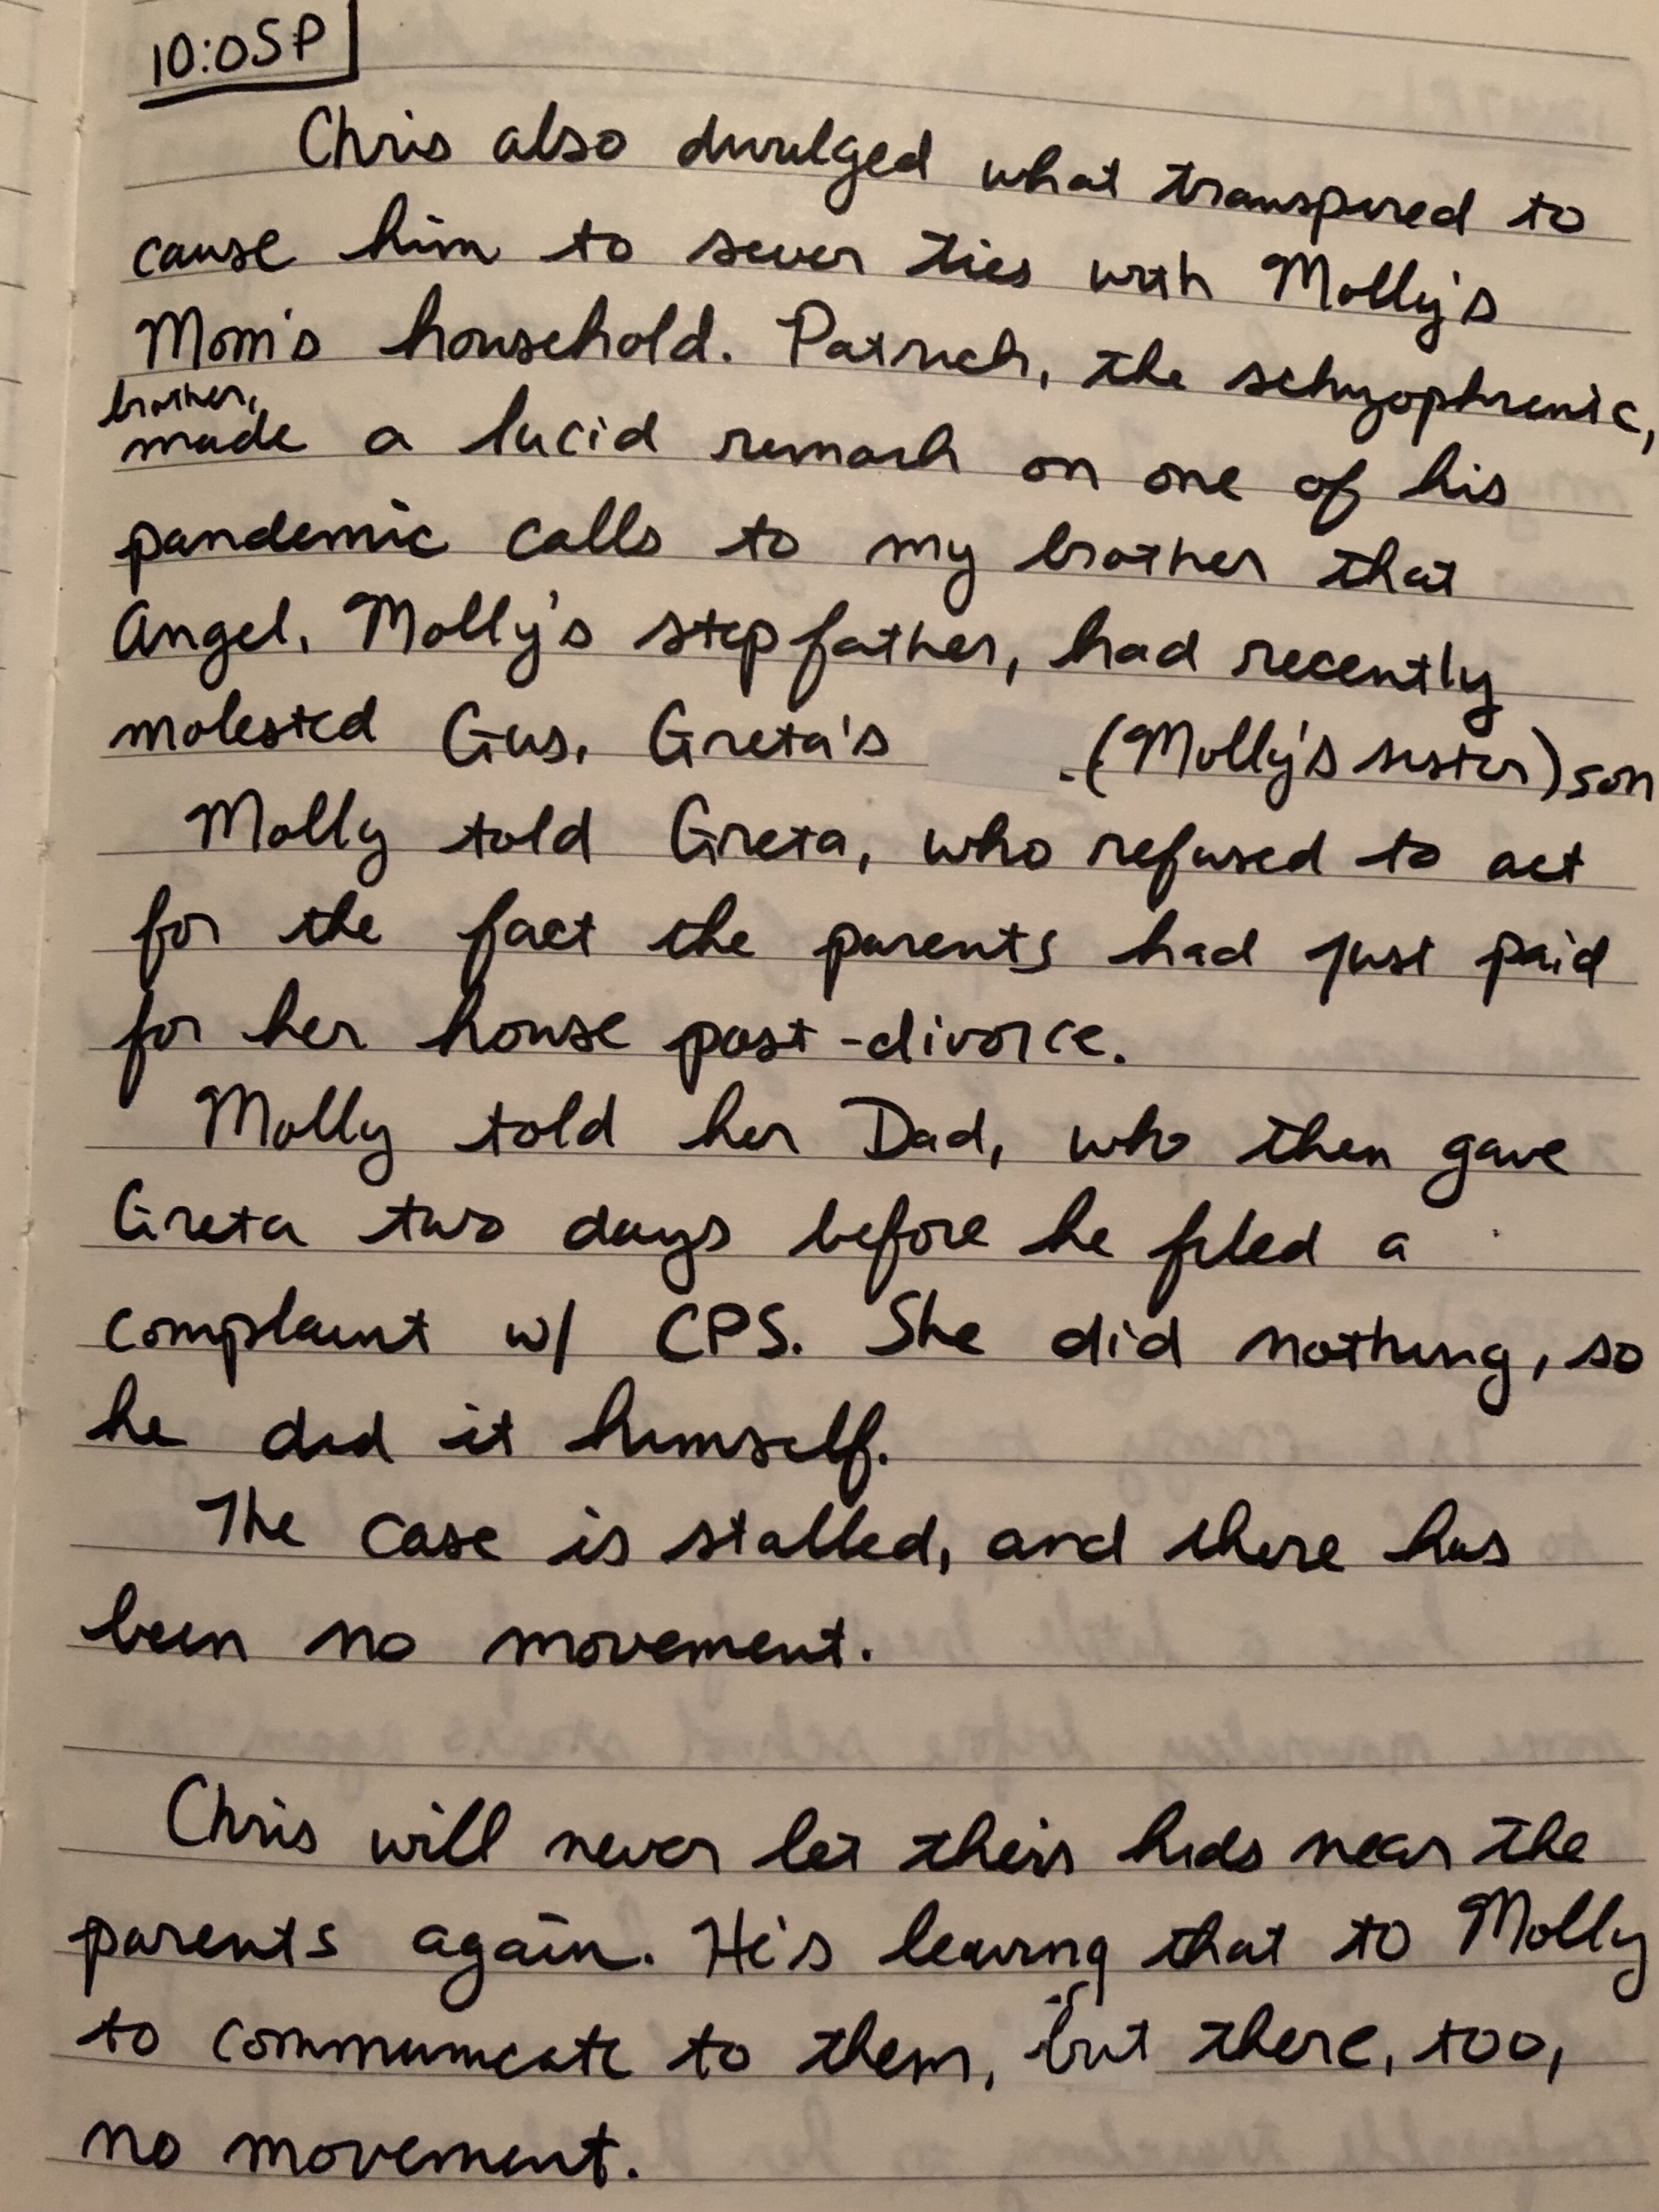 10:05P
Chris also divulged what transpired to
cause him to sever ties with Molly's
Mom's household. Patrick, the schizophrenic,
brother,
made a lucid remark on one of his
pandemic calls to my brother that
Angel, Molly's stepfather, had recently
molested Gus, Greta's (Molly's sister) son
Molly told Greta, who refused to act
for the fact the parents had just paid
for her house post-divorce.
Molly told her Dad, who then gave
Greta two days before he filed a
complaint w/ CPS. She did nothing, so
he did it himself.
The case is stalled, and there has
been no movement.
Chris will never let their kids near the
parents again. He's leaving that to Molly
to communicate to them, but there, too,
no movement.